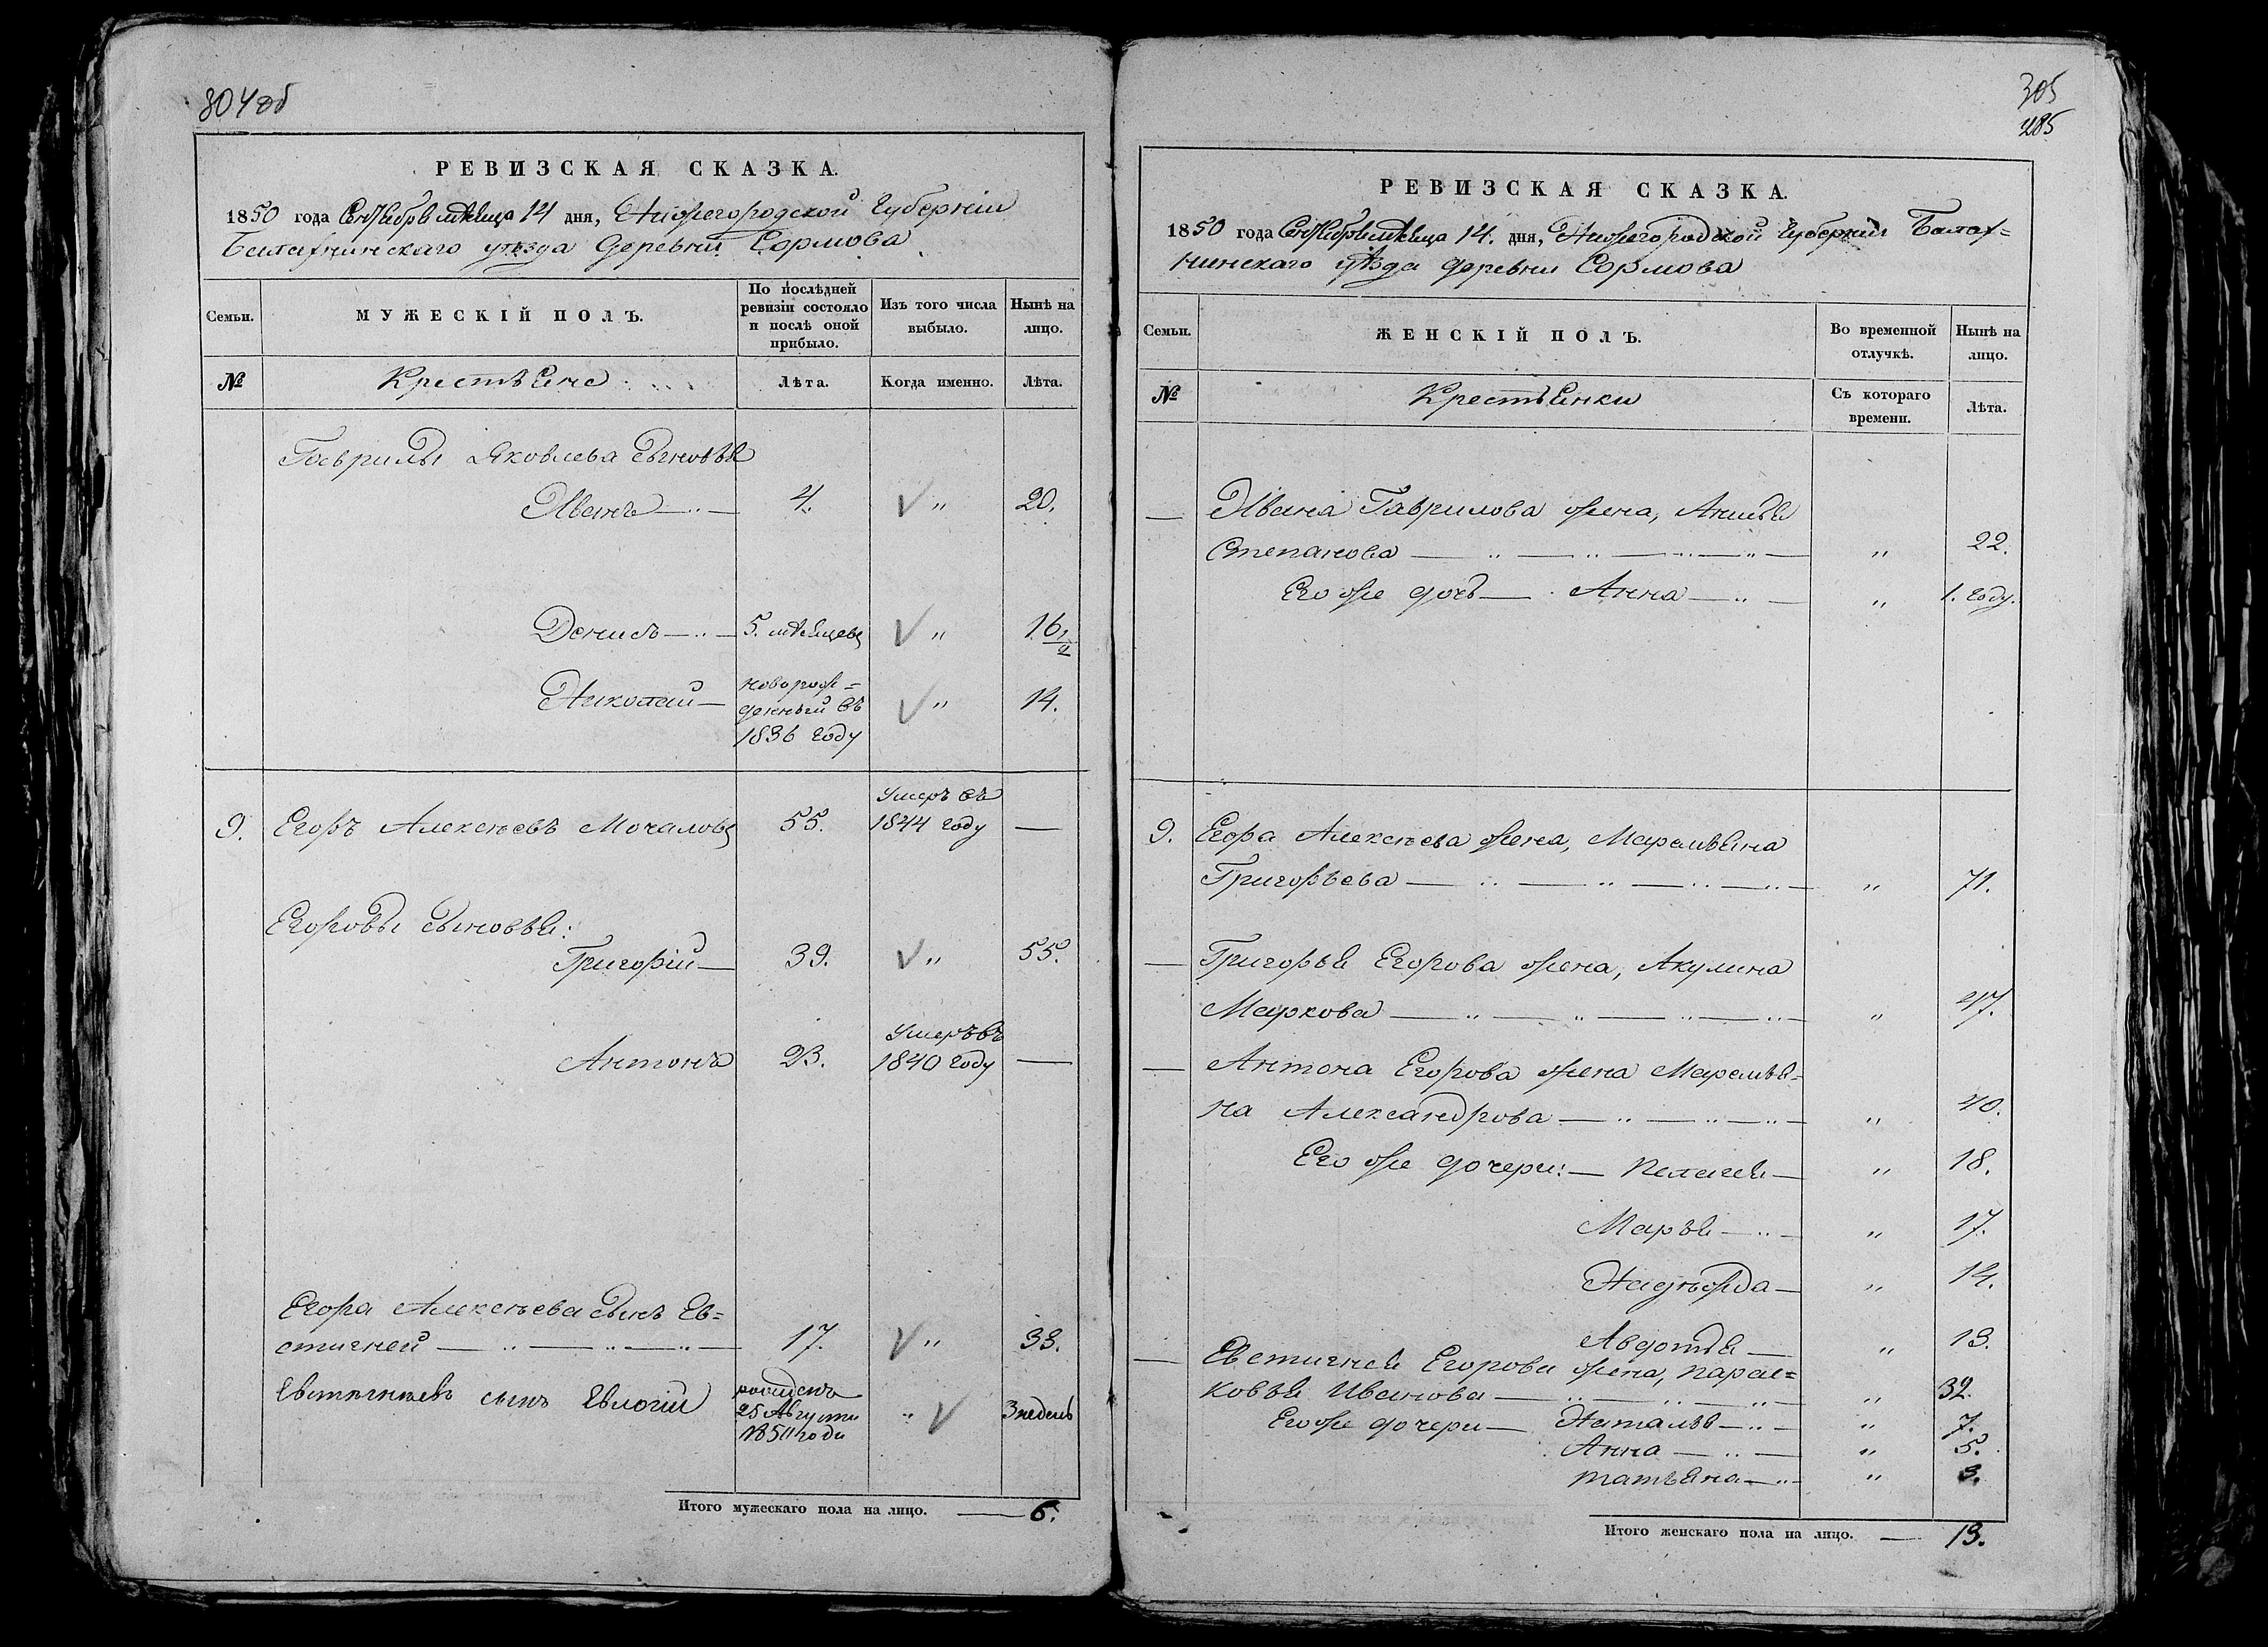 304 об
РЕВИЗСКАЯ СКАЗКА.
1850 года Сентября месяца 14 дня, Нижегородской Губернiи
Балахнинскаго уѣзда деревни Сормова
Семьи. МУЖЕСКIЙ ПОЛЪ. По послѣдней ревизiи состояло и послѣ оной прибыло. Изъ того числа выбыло. Нынѣ на лицо.
№ Крестьяне Лѣта. Когда именно. Лѣта.
Гаврилы Яковлева сыновья
Иванъ 4. " 20.
Денисъ 5. месяцевъ " 16 1/2
Николай новорож= денный въ 1836 году " 14.
9. Егоръ Алексеевъ Мочаловъ 55. Умеръ въ 1844 году —
Егоровы сыновья:
Григорiй — 39. " 55.
Антонъ 23. Умеръ въ 1840 году —
Егора Алексеева сынъ Ев=
стигней 17. " 33.
Евстигнеевъ сынъ Евлогiй рожденъ 25 Августа 1850 года " 3 недель
Итого мужескаго пола на лицо. — 6.
305
285
РЕВИЗСКАЯ СКАЗКА.
1850 года Сентября месяца 14. дня, Нижегородской Губернiи Балах=
нинскаго уѣзда деревни Сормова
Семьи. ЖЕНСКIЙ ПОЛЪ. Во временной отлучкѣ. Нынѣ на лицо.
№ Крестьянки Съ котораго времени. Лѣта.
— Ивана Гаврилова жена,
Степанова " 22.
Его же дочь — Анна " 1. году.
9. Егора Алексеева жена, Маремьяна
Григорьева " 71.
— Григорья Егорова жена, Акулина
Маркова " 47.
— Антона Егорова жена Маремья=
на Александрова " 40.
Его же дочери: — Пелагея — " 18.
Марья " 17.
Надежда — " 14.
Авдотья — " 13.
— Евстигнея Егорова жена, Парас=
ковья Иванова " 32.
Его же дочери — Наталья " 7.
Анна " 5.
Татьяна " 3.
Итого женскаго пола на лицо. — 13.